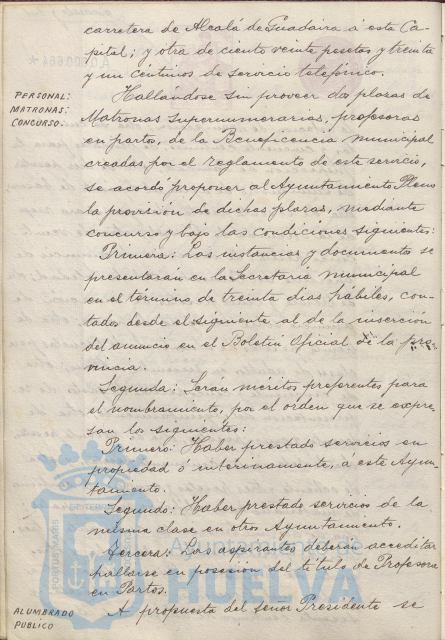 carretera de Alcalá de Guadaira á este Ca-
pital; y otra de ciento veinte pesetas y treinta
y un centimos de servicio telefónico.
PERSONAL:
MATRONAS:
CONCURSO:
Hallándose sin proveer dos plazas de
Matronas supernumerarias, profesoras
en partos, de la Beneficencia municipal
creadas por el reglamento de este servicio,
se acordó proponer al Ayuntamiento Pleno
la provisión de dichas plazas, mediante
concurso y bajo las condiciones siguientes:
Primera: Las instancias y documentos se
presentarán en la Secretaria municipal
en el término de treinta dias hábiles, con-
tados desde el siguiente al de la inserción
del anuncio en el Boletin Oficial de la pro-
vincia.
Segunda: Seran méritos preferentes para
el nombramiento, por el orden que se expre-
san los siguientes:
Primero: Haber prestado servicios en
propiedad ó interinamente, á este Ayun-
tamiento.
Segundo: Haber prestado servicios de la
misma clase en otros Ayuntamiento.
Tercera: Las aspirantes deberán acreditar
hallarse en posesión del titulo de Profesora
en Partos.
ALUMBRADO
PUBLICO
A propuesta del señor Presidente se
Ayuntamiento de
HUELVA